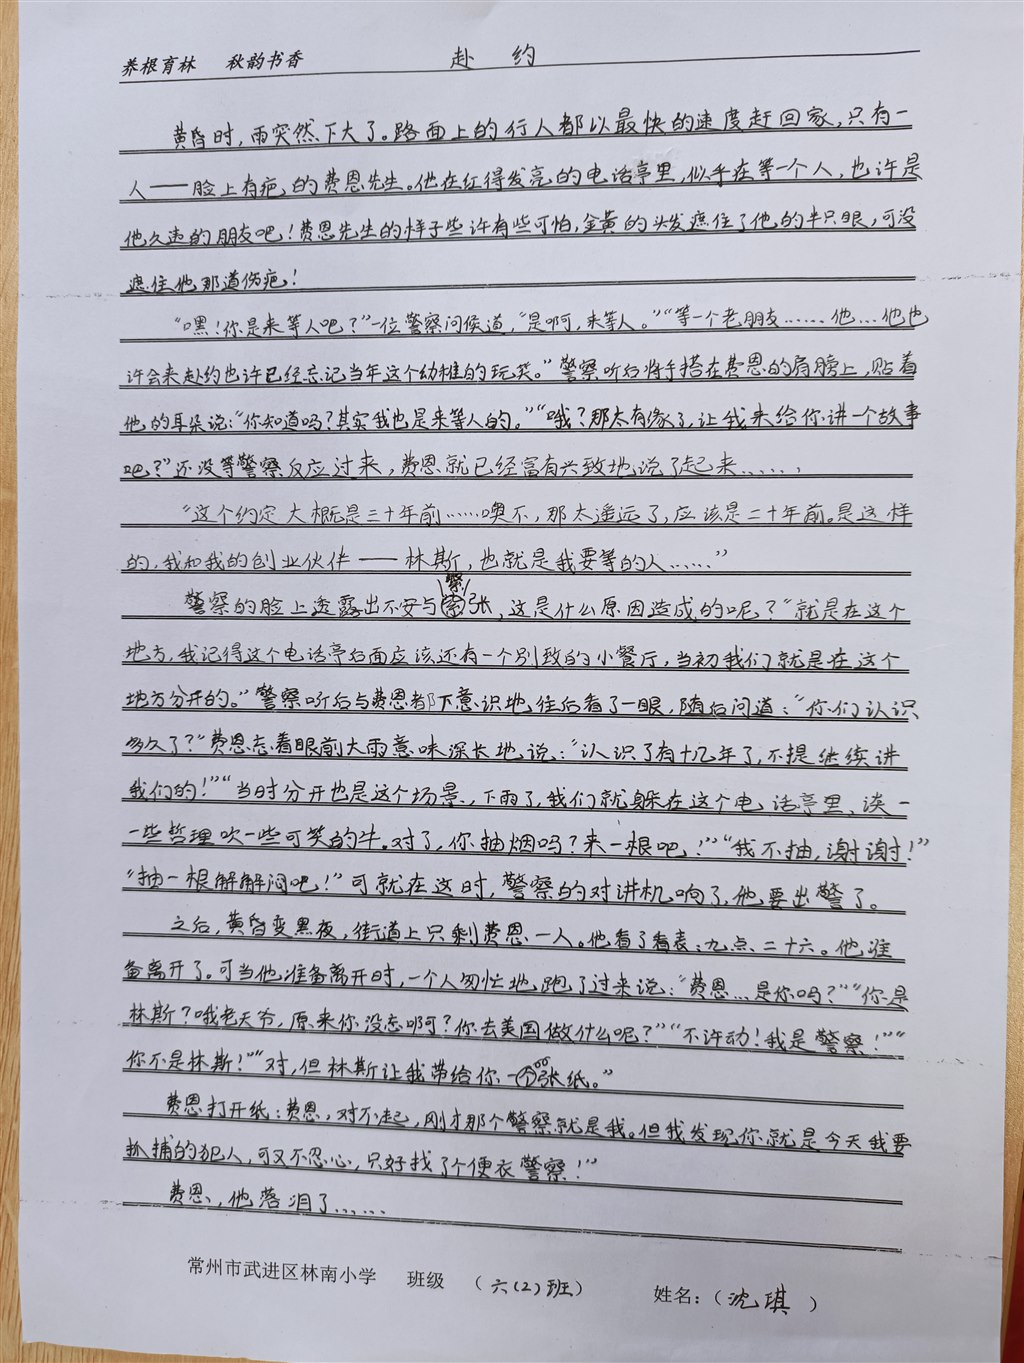 养根育林 秋韵书香 赴 约
黄昏时,雨突然下大了。路面上的行人都以最快的速度赶回家,只有一
人——脸上有疤的费恩先生。他在红得发亮的电话亭里,似乎在等一个人,也许是
他久违的朋友吧!费恩先生的样子些许有些可怕,金黄的头发遮住了他的半只眼,可没
遮住他那道伤疤!
“嘿!你是来等人吧?”一位警察问候道,“是啊,来等人。”“等一个老朋友……他…他也
许会来赴约也许已经忘记当年这个幼稚的玩笑。”警察听后将手搭在费恩的肩膀上,贴着
他的耳朵说:“你知道吗?其实我也是来等人的。”“哦?那太有缘了,让我来给你讲一个故事
吧?”还没等警察反应过来,费恩就已经富有兴致地说了起来……,
“这个约定大概是三十年前……噢不,那太遥远了,应该是二十年前。是这样
的,我和我的创业伙伴——林斯,也就是我要等的人……”
警察的脸上透露出不安与紧张,这是什么原因造成的呢?“就是在这个
地方,我记得这个电话亭后面应该还有一个别致的小餐厅,当初我们就是在这个
地方分开的。”警察听后与费恩都下意识地往后看了一眼,随后问道:“你们认识
多久了?”费恩忘着眼前大雨意味深长地说:“认识了有十几年了,不提继续讲
我们的!”“当时分开也是这个场景,下雨了,我们就躲在这个电话亭里、谈一
一些哲理吹一些可笑的牛。对了,你抽烟吗?来一根吧!”“我不抽,谢谢!”
“抽一根解解闷吧!”可就在这时,警察的对讲机响了,他要出警了。
之后,黄昏变黑夜,街道上只剩费恩一人。他看了看表:九点二十六。他准
备离开了。可当他准备离开时,一个人匆忙地跑了过来说:“费恩…是你吗?”“你是
林斯?哦老天爷,原来你没忘啊?你去美国做什么呢?”“不许动!我是警察!”“
你不是林斯!”“对,但林斯让我带给你一张纸。”
费恩打开纸:费恩,对不起,刚才那个警察就是我。但我发现你就是今天我要
抓捕的犯人,可又不忍心,只好找了个便衣警察!”
费恩,他落泪了……
常州市武进区林南小学 班级 (六(2)班) 姓名:(沈琪)